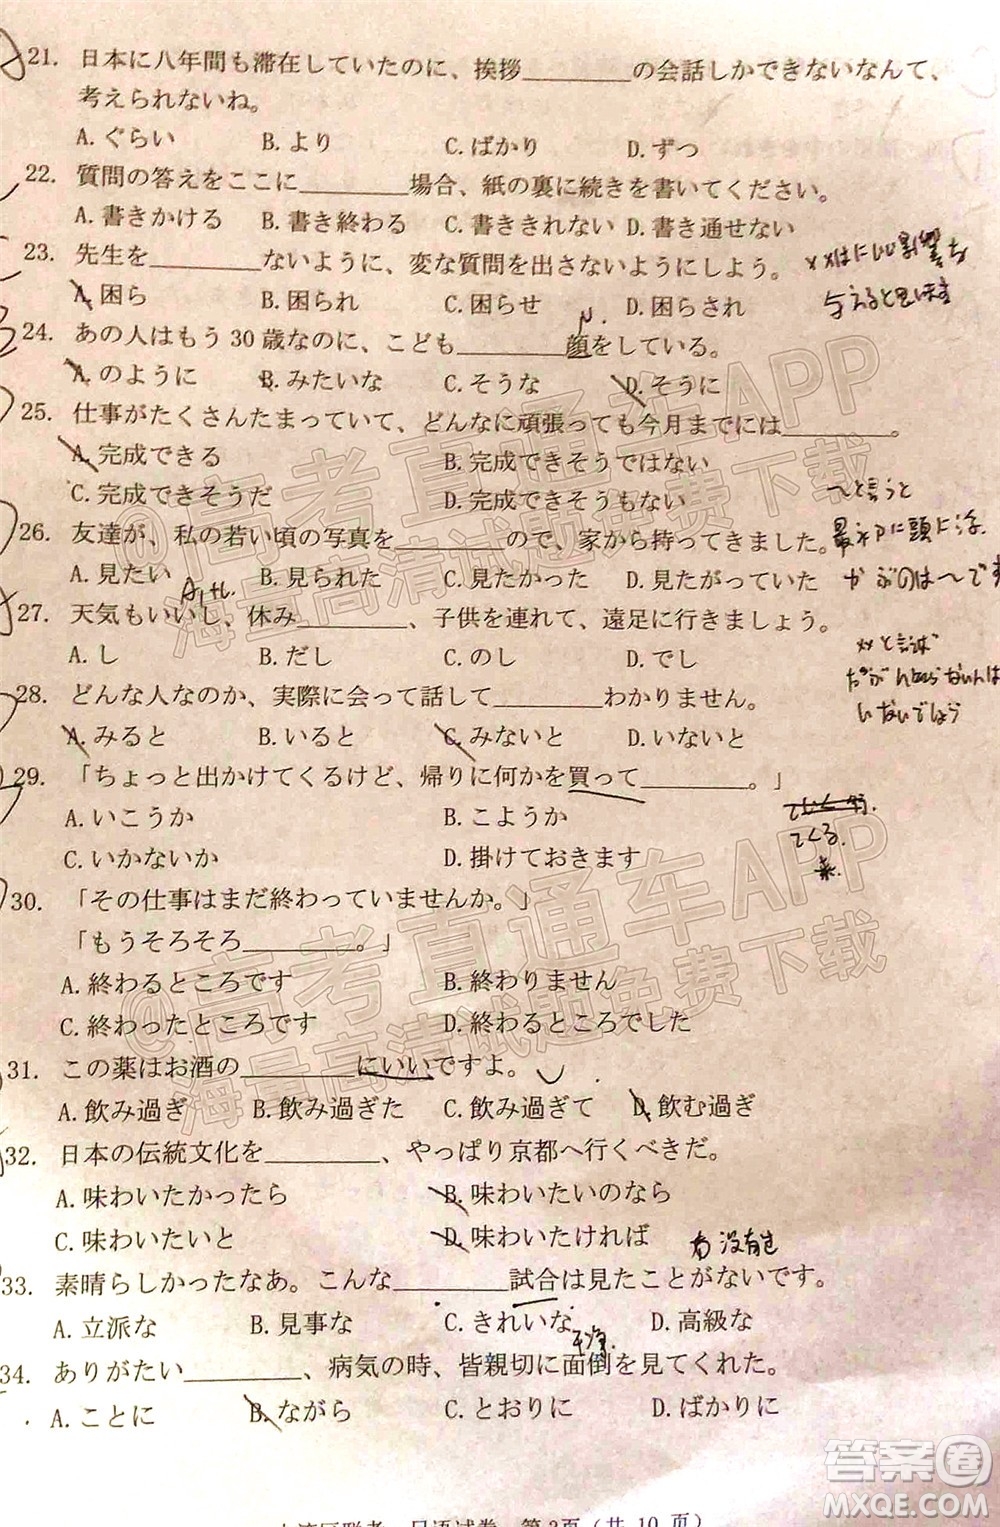 21. 日本に八年間も滞在していたのに、挨拶________の会話しかできないなんて、
考えられないね。
A. ぐらい B. より C. ばかり D. ずつ
22. 質問の答えをここに________場合、紙の裏に続きを書いてください。
A. 書きかける B. 書き終わる C. 書ききれない D. 書き通せない
23. 先生を________ないように、変な質問を出さないようにしよう。
A. 困ら B. 困られ C. 困らせ D. 困らされ
24. あの人はもう 30 歳なのに、こども________顔をしている。
A. のように B. みたいな C. そうな D. そうに
25. 仕事がたくさんたまっていて、どんなに頑張っても今月までには________。
A. 完成できる B. 完成できそうではない
C. 完成できそうだ D. 完成できそうもない
へと言うと
26. 友達が、私の若い頃の写真を________ので、家から持ってきました。
A. 見たい B. 見たがる C. 見たかった D. 見たがっていた
27. 天気もいいし、休み________、子供を連れて、遠足に行きましょう。
A. し B. だし C. のし D. でし
28. どんな人なのか、実際に会って話して________わかりません。
いないでしょう
A. みると B. いると C. みないと D. いないと
29. 「ちょっと出かけてくるけど、帰りに何かを買って________。」
A. いこうか B. こようか
てくる.
C. いかないか D. 掛けておきます
来.
30. 「その仕事はまだ終わっていませんか。」
「もうそろそろ________。」
A. 終わるところです B. 終わりません
C. 終わったところです D. 終わるところでした
31. この薬はお酒の________にいいですよ。
A. 飲み過ぎ B. 飲み過ぎた C. 飲み過ぎて D. 飲む過ぎ
32. 日本の伝統文化を________、やっぱり京都へ行くべきだ。
A. 味わいたかったら B. 味わいたいのなら
C. 味わいたいと D. 味わいたければ
33. 素晴らしかったなあ。こんな________試合は見たことがないです。
A. 立派な B. 見事な C. きれいな D. 高級な
34. ありがたい________、病気の時、皆親切に面倒を見てくれた。
A. ことに B. ながら C. とおりに D. ばかりに
日语试卷 第3页（共 10 页）
@高考直通车APP
海量高清试题免费下载
@高考直通车APP
海量高清试题免费下载
答案圈
MXQE.COM